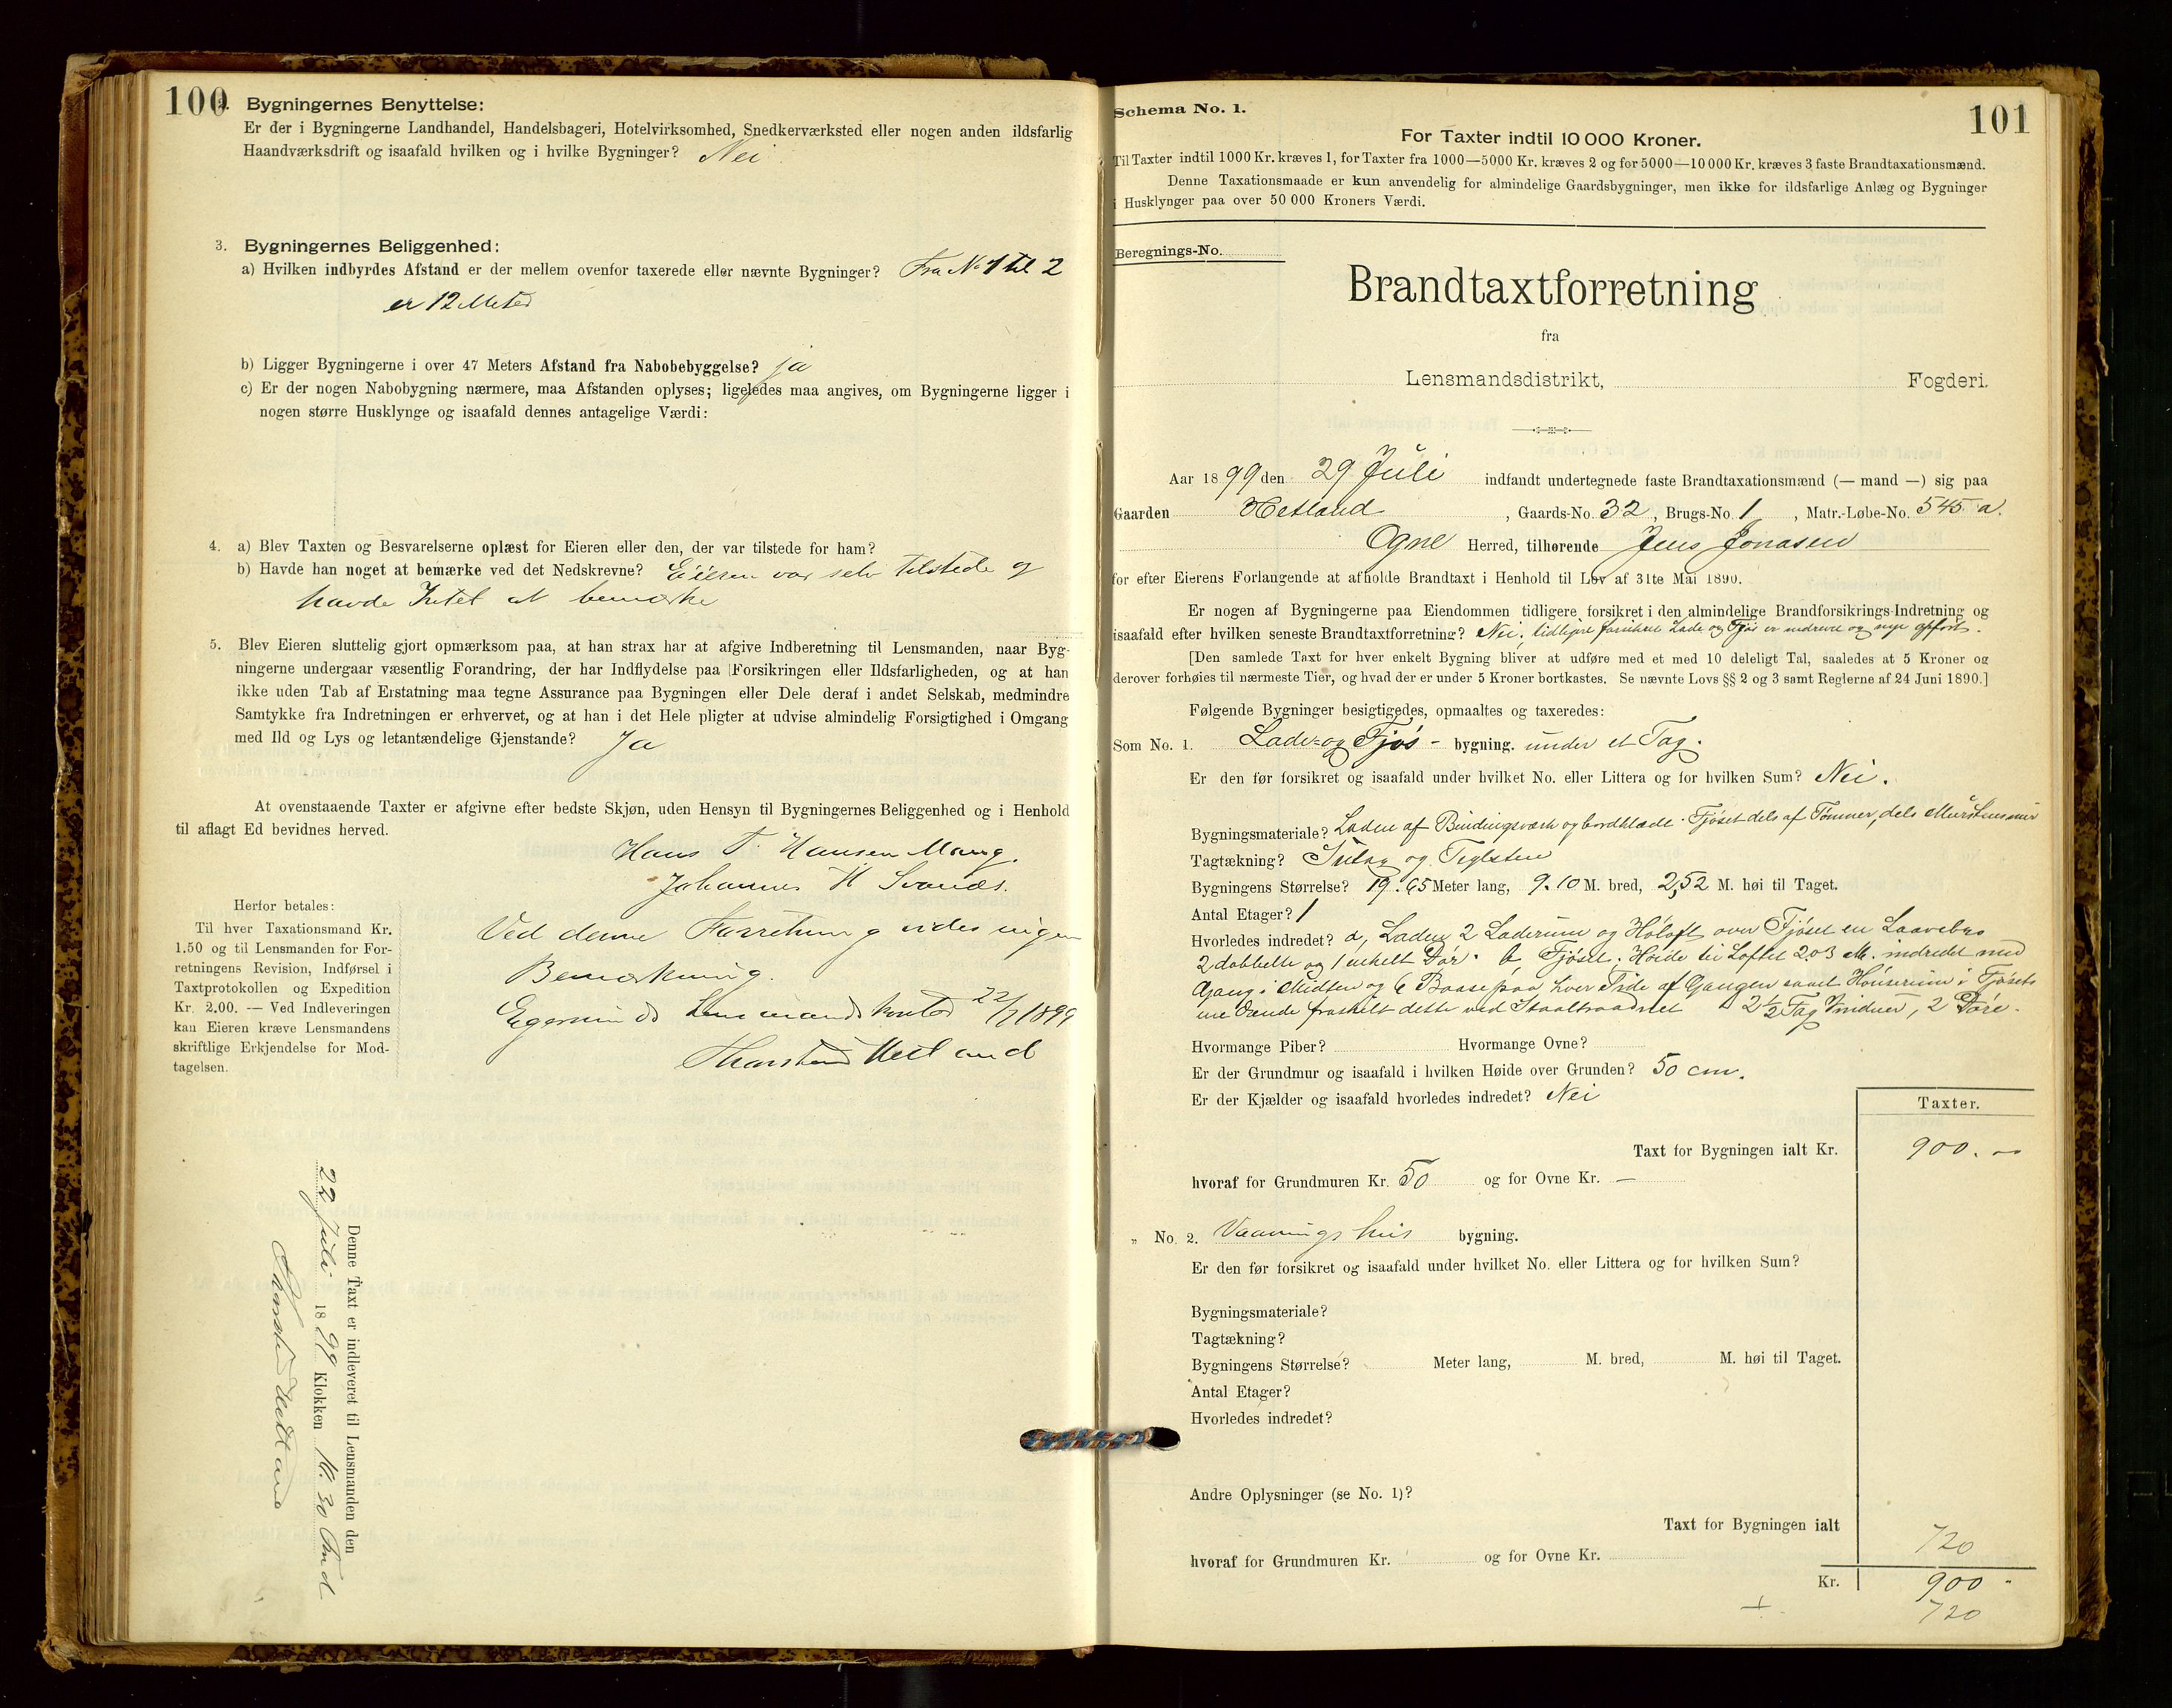 100
2. Bygningernes Benyttelse:
Er der i Bygningerne Landhandel, Handelsbageri, Hotelvirksomhed, Snedkerværksted eller nogen anden ildsfarlig
Haandværksdrift og isaafald hvilken og i hvilke Bygninger? Nei
3. Bygningernes Beliggenhed:
a) Hvilken indbyrdes Afstand er der mellem ovenfor taxerede eller nævnte Bygninger? Fra No 1 til 2
er 12 Meter
b) Ligger Bygningerne i over 47 Meters Afstand fra Nabobebyggelse? ja
c) Er der nogen Nabobygning nærmere, maa Afstanden oplyses; ligeledes maa angives, om Bygningerne ligger i
nogen større Husklynge og isaafald dennes antagelige Værdi:
4. a) Blev Taxten og Besvarelserne oplæst for Eieren eller den, der var tilstede for ham?
b) Havde han noget at bemærke ved det Nedskrevne? Eieren var selv tilstede og
havde Intet at bemærke
5. Blev Eieren sluttelig gjort opmærksom paa, at han strax har at afgive Indberetning til Lensmanden, naar Byg-
ningerne undergaar væsentlig Forandring, der har Indflydelse paa Forsikringen eller Ildsfarligheden, og at han
ikke uden Tab af Erstatning maa tegne Assurance paa Bygningen eller Dele deraf i andet Selskab, medmindre
Samtykke fra Indretningen er erhvervet, og at han i det Hele pligter at udvise almindelig Forsigtighed i Omgang
med Ild og Lys og letantændelige Gjenstande? Ja
At ovenstaaende Taxter er afgivne efter bedste Skjøn, uden Hensyn til Bygningernes Beliggenhed og i Henhold
til aflagt Ed bevidnes herved.
Hans T. Hansen Mong.
Johannes H Svanes.
Ved denne Forretning vides ingen
Bemærkning.
Egersunds Lensmandskontor 22/7 1899
Thorstein Hetland
Herfor betales:
Til hver Taxationsmand Kr.
1.50 og til Lensmanden for For-
retningens Revision, Indførsel i
Taxtprotokollen og Expedition
Kr. 2.00. — Ved Indleveringen
kan Eieren kræve Lensmandens
skriftlige Erkjendelse for Mod-
tagelsen.
Denne Taxt er indleveret til Lensmanden den
22 Juli 1899 Klokken 10.30 Fmd
Thorstein Hetland
101
Schema No. 1.
For Taxter indtil 10 000 Kroner.
Til Taxter indtil 1000 Kr. kræves 1, for Taxter fra 1000—5000 Kr. kræves 2 og for 5000—10 000 Kr. kræves 3 faste Brandtaxationsmænd.
Denne Taxationsmaade er kun anvendelig for almindelige Gaardsbygninger, men ikke for ildsfarlige Anlæg og Bygninger
i Husklynger paa over 50 000 Kroners Værdi.
Beregnings-No.
Brandtaxtforretning
fra
Lensmandsdistrikt, Fogderi.
Aar 1899 den 29 Juli indfandt undertegnede faste Brandtaxationsmænd (— mand —) sig paa
Gaarden Hetland, Gaards-No. 32, Brugs-No. 1, Matr.-Løbe-No. 545 a.
Ogne Herred, tilhørende Jens Jonasen
for efter Eierens Forlangende at afholde Brandtaxt i Henhold til Lov af 31te Mai 1890.
Er nogen af Bygningerne paa Eiendommen tidligere forsikret i den almindelige Brandforsikrings-Indretning og
isaafald efter hvilken seneste Brandtaxtforretning? Nei, tidligere forsikret Lade og Fjøs er nedrevet og nye opført.
[Den samlede Taxt for hver enkelt Bygning bliver at udføre med et med 10 deleligt Tal, saaledes at 5 Kroner og
derover forhøies til nærmeste Tier, og hvad der er under 5 Kroner bortkastes. Se nævnte Lovs §§ 2 og 3 samt Reglerne af 24 Juni 1890.]
Følgende Bygninger besigtigedes, opmaaltes og taxeredes:
Som No. 1. Lade og Fjøs - bygning. under et Tag.
Er den før forsikret og isaafald under hvilket No. eller Littera og for hvilken Sum? Nei.
Bygningsmateriale? Laden af Bindingsværk og bordklædt. Fjøset dels af Tømmer, dels Murstensmur
Tagtækning? og Teglsten
Bygningens Størrelse? 19.65 Meter lang, 9.10 M. bred, 2,52 M. høi til Taget.
Antal Etager? 1
Hvorledes indredet? a, Laden 2 Laderum og Høloft over Fjøset en Laavebro
2 dobbelte og 1 enkelt Dør. b, Fjøset. Høide til Loftet 2.03 M. indredet med
Gang i Midten og 6 Baase paa hver Side af Gangen samt Hønserum i Fjøsets
ene Ende fraskilt dette ved Staaltraadnet 2 1/2 Fag Vinduer, 2 Døre.
Hvormange Piber? Hvormange Ovne?
Er der Grundmur og isaafald i hvilken Høide over Grunden? 50 cm.
Er der Kjælder og isaafald hvorledes indredet? Nei
Taxter.
Taxt for Bygningen ialt Kr. 900.
hvoraf for Grundmuren Kr. 50 og for Ovne Kr. —
„ No. 2. Vaaningshus bygning.
Er den før forsikret og isaafald under hvilket No. eller Littera og for hvilken Sum?
Bygningsmateriale?
Tagtækning?
Bygningens Størrelse? Meter lang, M. bred, M. høi til Taget.
Antal Etager?
Hvorledes indredet?
Andre Oplysninger (se No. 1)?
Taxt for Bygningen ialt 720
hvoraf for Grundmuren Kr. og for Ovne Kr.
Kr. 900 -
720